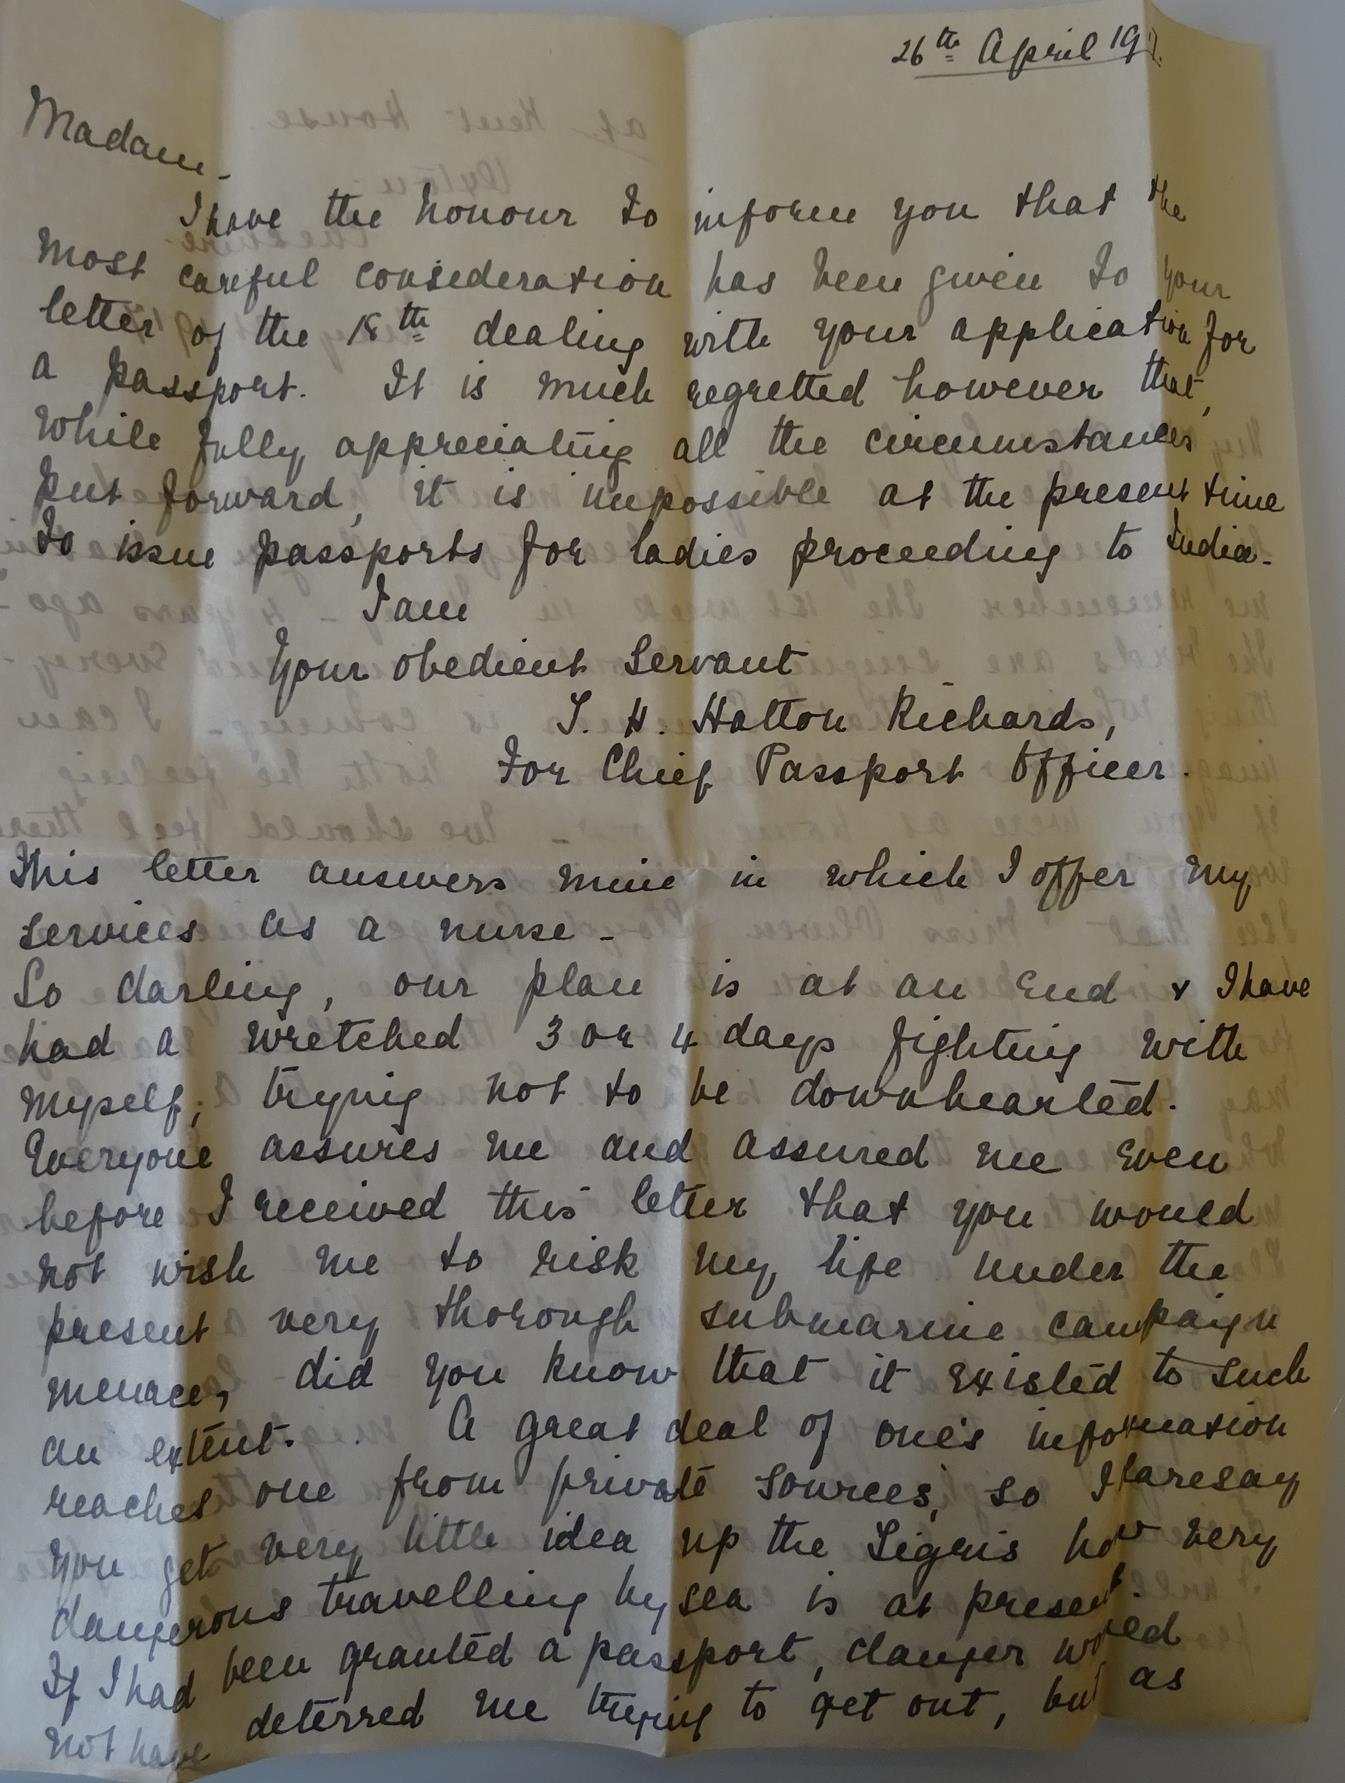 26th April 19
Madam -
I have the honour to inform you that the
most careful consideration has been given to your
letter of the 18th dealing with your application for
a passport. It is much regretted however that,
while fully appreciating all the circumstances
put forward, it is impossible at the present time
to issue passports for ladies proceeding to India.
I am
Your obedient Servant
S. H. Hatton Richards,
For Chief Passport Officer.
This letter answers mine in which I offer my
services as a nurse -
So darling, our plan is at an end & I have
had a wretched 3 or 4 days fighting with
myself; trying not to be downhearted.
Everyone assures me and assured me even
before I received this letter that you would
not wish me to risk my life under the
present very thorough submarine campaign
menace, did you know that it existed to such
an extent. A great deal of one's information
reaches one from private sources, so I daresay
you get very little idea up the Tigris how very
dangerous travelling by sea is at present.
If I had been granted a passport, danger would
not have deterred me trying to get out, but as